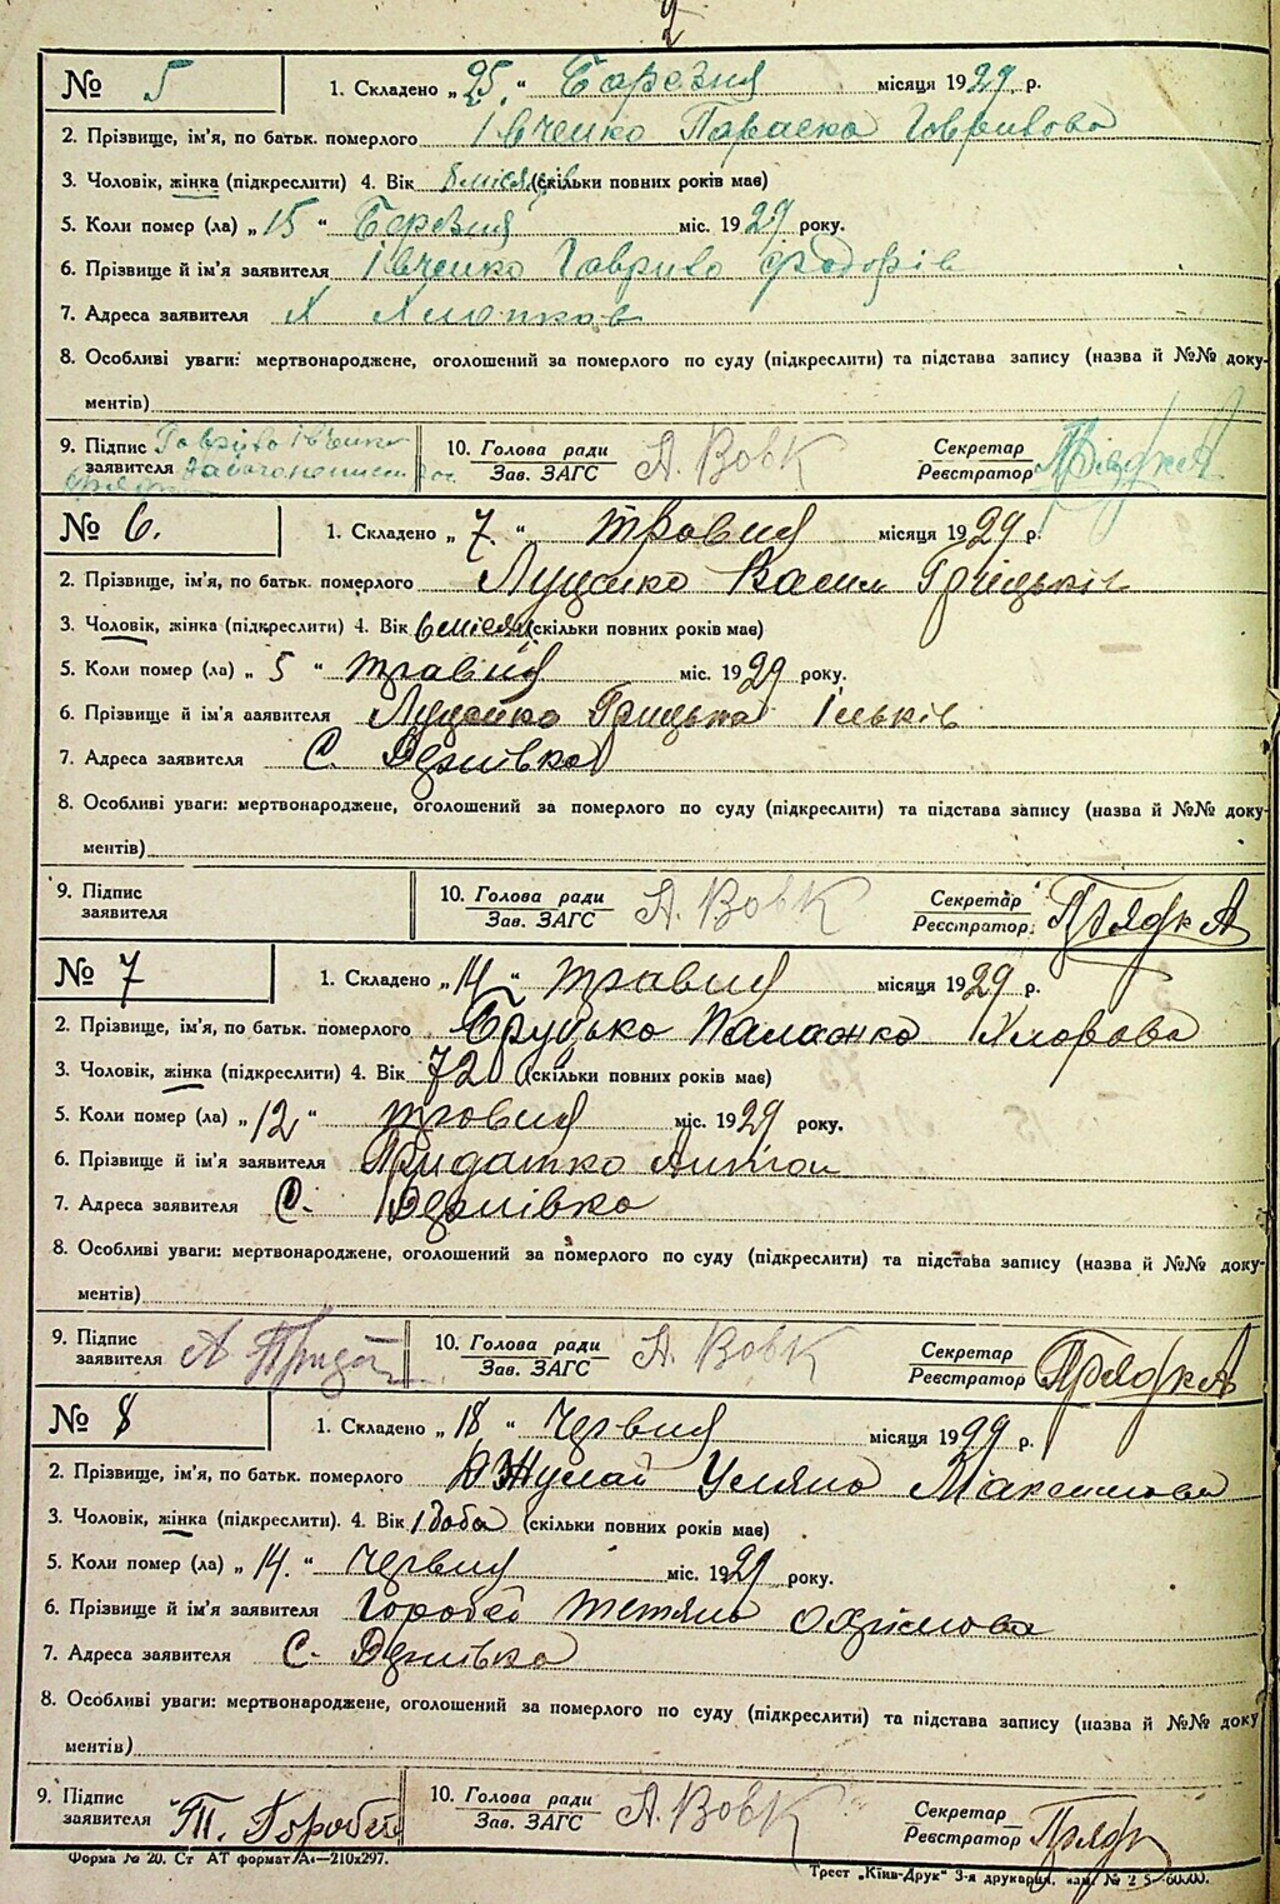 2
№ 5 1. Складено „25“ Березня місяця 1929 р.
2. Прізвище, ім'я, по батьк. померлого Івченко Параска Гаврилова
3. Чоловік, жінка (підкреслити) 4. Вік 8 місяців (скільки повних років має)
5. Коли помер (ла) „15“ Березня міс. 1929 року.
6. Прізвище й ім'я заявителя Івченко Гаврило Федорів
7. Адреса заявителя Х Хлопков
8. Особливі уваги: мертвонароджене, оголошений за померлого по суду (підкреслити) та підстава запису (назва й №№ доку-
ментів)
9. Підпис заявителя Гаврило Івченко 10. Голова ради Зав. ЗАГС А. Вовк Секретар Реєстратор
№ 6. 1. Складено „7“ травня місяця 1929 р.
2. Прізвище, ім'я, по батьк. померлого Луценко Васил Грицьків
3. Чоловік, жінка (підкреслити) 4. Вік 6 місяц (скільки повних років має)
5. Коли помер (ла) „5“ травня міс. 1929 року.
6. Прізвище й ім'я заявителя Луценко Грицько Ільків
7. Адреса заявителя С.
8. Особливі уваги: мертвонароджене, оголошений за померлого по суду (підкреслити) та підстава запису (назва й №№ доку-
ментів)
9. Підпис заявителя 10. Голова ради Зав. ЗАГС А. Вовк Секретар Реєстратор
№ 7 1. Складено „14“ травня місяця 1929 р.
2. Прізвище, ім'я, по батьк. померлого Бруцько Палажка
3. Чоловік, жінка (підкреслити) 4. Вік 72 (скільки повних років має)
5. Коли помер (ла) „12“ травня міс. 1929 року.
6. Прізвище й ім'я заявителя Придатко Антон
7. Адреса заявителя С.
8. Особливі уваги: мертвонароджене, оголошений за померлого по суду (підкреслити) та підстава запису (назва й №№ доку-
ментів)
9. Підпис заявителя А 10. Голова ради Зав. ЗАГС А. Вовк Секретар Реєстратор
№ 8 1. Складено „18“ червня місяця 1929 р.
2. Прізвище, ім'я, по батьк. померлого Джулай Уляна Максимова
3. Чоловік, жінка (підкреслити). 4. Вік 1 доба (скільки повних років має)
5. Коли помер (ла) „14.“ червня міс. 1929 року.
6. Прізвище й ім'я заявителя Горобей Тетяна
7. Адреса заявителя С.
8. Особливі уваги: мертвонароджене, оголошений за померлого по суду (підкреслити) та підстава запису (назва й №№ доку
ментів)
9. Підпис заявителя Т. Горобей 10. Голова ради Зав. ЗАГС А. Вовк Секретар Реєстратор
Форма № 20. Ст АТ формат А₄—210х297. Трест „Київ-Друк“ 3-я друкарня,